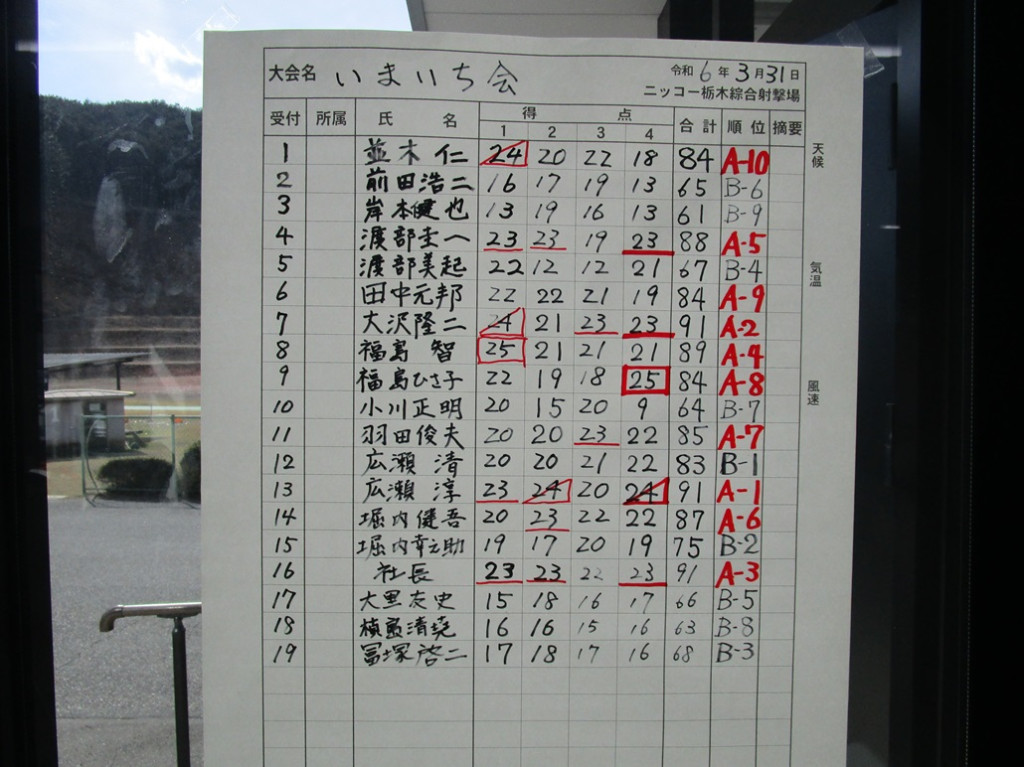 大会名 いまいち会 令和 6 年 3 月 31 日
ニッコー栃木綜合射撃場
受付 所属 氏名 得点 合計 順位 摘要
1 2 3 4
1 並木 仁 24 20 22 18 84 A-10
2 前田浩二 16 17 19 13 65 B-6
3 岸本健也 13 19 16 13 61 B-9
4 渡部圭一 23 23 19 23 88 A-5
5 渡部美起 22 12 12 21 67 B-4
6 田中元邦 22 22 21 19 84 A-9
7 大沢隆二 24 21 23 23 91 A-2
8 福島 智 25 21 21 21 89 A-4
9 福島ひさ子 22 19 18 25 84 A-8
10 小川正明 20 15 20 9 64 B-7
11 羽田俊夫 20 20 23 22 85 A-7
12 広瀬 清 20 20 21 22 83 B-1
13 広瀬 淳 23 24 20 24 91 A-1
14 堀内健吾 20 23 22 22 87 A-6
15 堀内幸之助 19 17 20 19 75 B-2
16 社長 23 23 22 23 91 A-3
17 大黒友史 15 18 16 17 66 B-5
18 16 16 15 16 63 B-8
19 冨塚啓二 17 18 17 16 68 B-3
天候
気温
風速